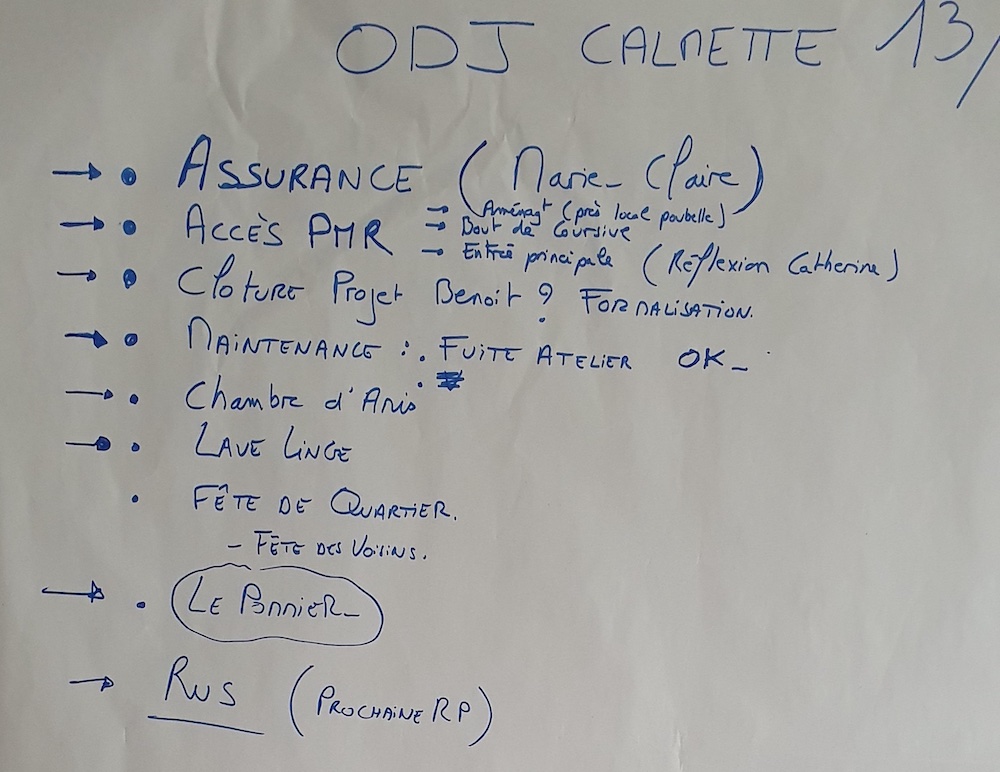 ODJ CALMETTE 13/
→ • ASSURANCE (Marie-Claire)
→ • ACCÈS PMR → Aménagt (près local poubelle)
→ Bout de Coursive
→ Entrée principale (Réflexion Catherine)
→ • Cloture Projet Benoit ? FORMALISATION.
→ • MAINTENANCE : • FUITE ATELIER OK -
→ • Chambre d'Amis
→ • LAVE LINGE
• FÊTE DE QUARTIER.
- FÊTE DES VOISINS.
→ • LE POMMIER -
→ RUS (PROCHAINE RP)